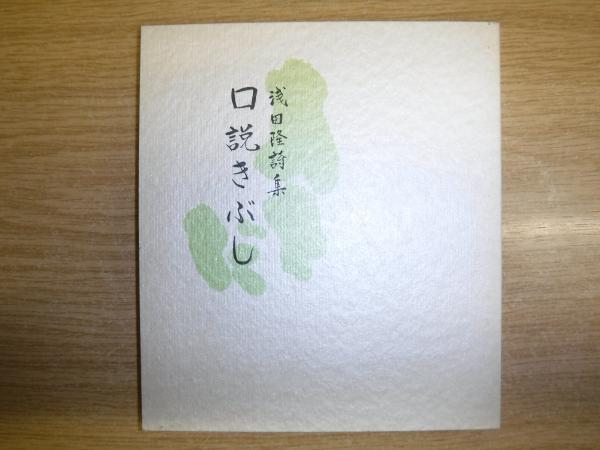 浅田隆詩集
口説きぶし